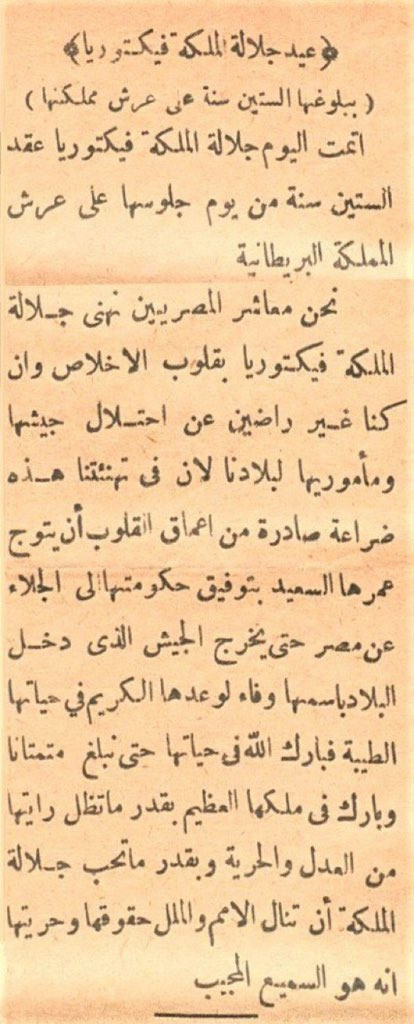 ﴿عيد جلالة الملكة فيكتوريا﴾
( ببلوغها الستين سنة على عرش مملكتها )
اتمت اليوم جلالة الملكة فيكتوريا عقد
الستين سنة من يوم جلوسها على عرش
المملكة البريطانية
نحن معاشر المصريين نهنى جلالة
الملكة فيكتوريا بقلوب الاخلاص وان
كنا غير راضين عن احتلال جيشها
ومأموريها لبلادنا لان فى تهنئتنا هذه
ضراعة صادرة من اعماق القلوب أن يتوج
عمرها السعيد بتوفيق حكومتها الى الجلاء
عن مصر حتى يخرج الجيش الذى دخل
البلاد باسمها وفاء لوعدها الكريم في حياتها
الطيبة فبارك الله فى حياتها حتى نبلغ متمنانا
وبارك فى ملكها العظيم بقدر ماتظل رايتها
من العدل والحرية وبقدر ماتحب جلالة
الملكة أن تنال الامم والملل حقوقها وحريتها
انه هو السميع المجيب